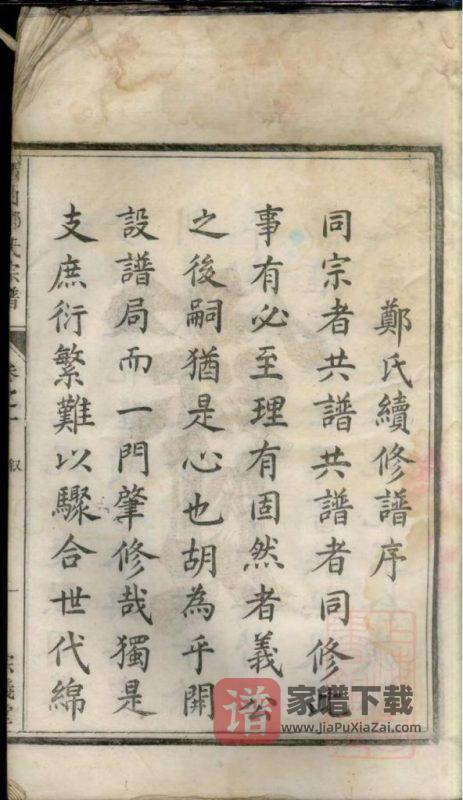 鄭氏續修譜序
同宗者共譜共譜者同修此
事有必至理有固然者義公
之後嗣猶是心也胡為乎開
設譜局而一門肇修哉獨是
支庶衍繁難以驟合世代綿
鄭氏宗譜 卷之一 叙 一
家譜下载
www.JiaPuXiaZai.com
譜